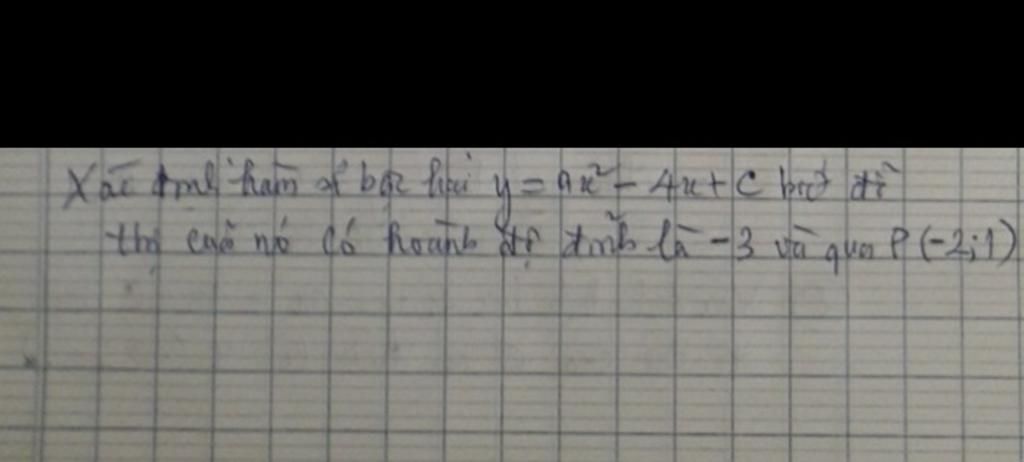 Xác định hàm số bậc hai y = ax² - 4x + c biết đồ
thị của nó có hoành độ đỉnh là -3 và qua P(-2;1)